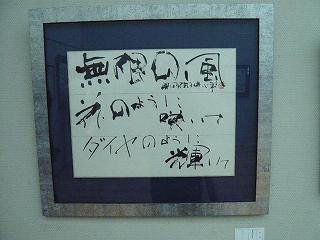 無限の風
花のように 咲いて
ダイヤのように 輝いて